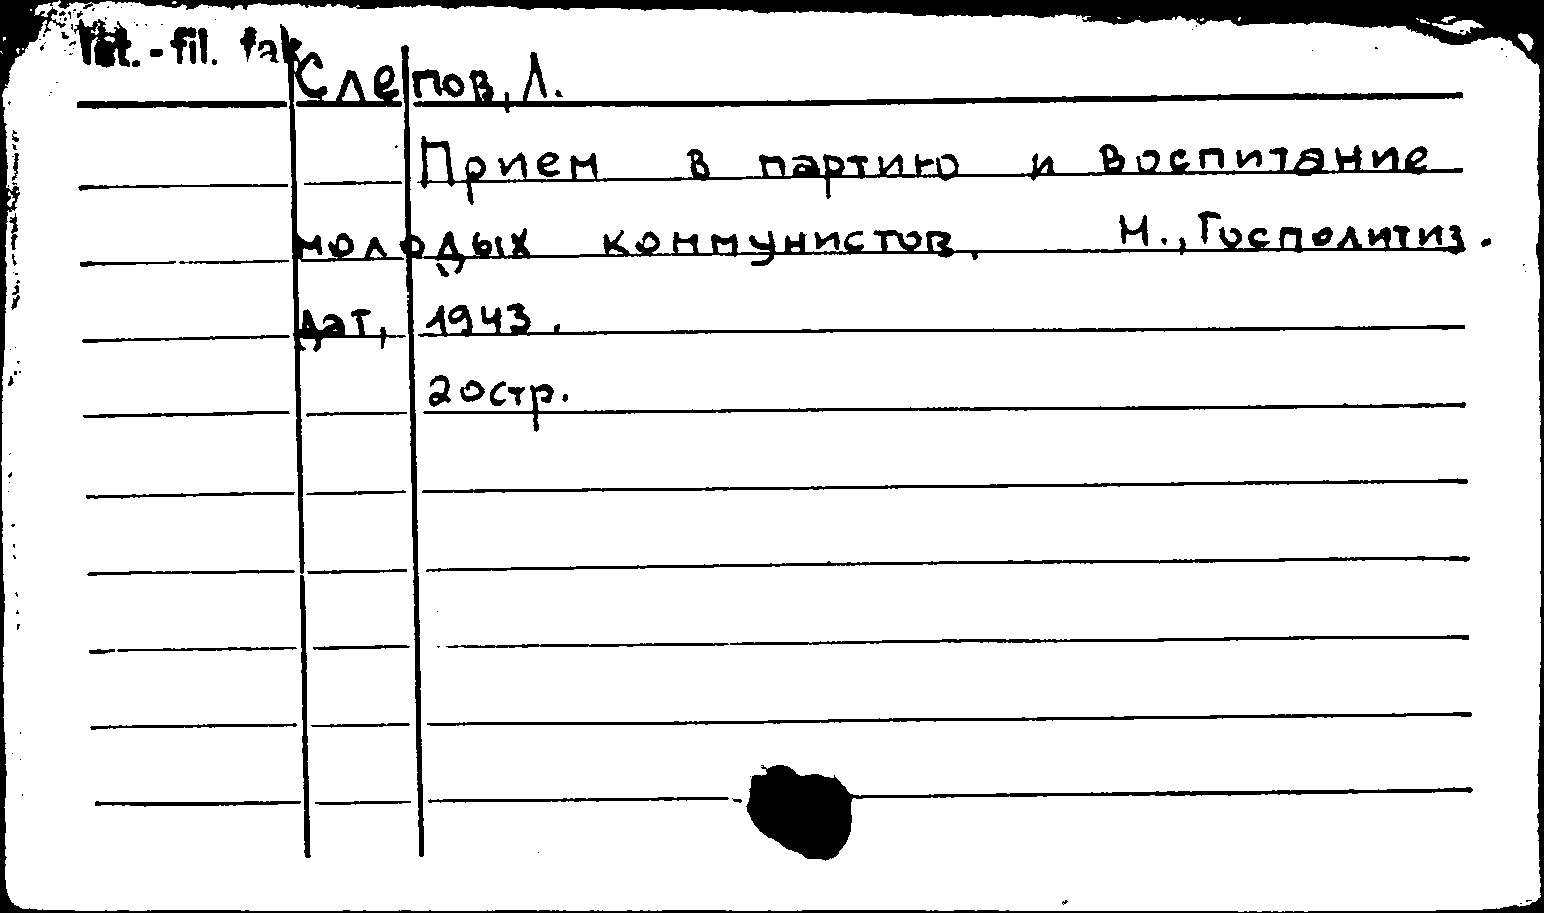 Ist.-fil. fak
Слепов, Л.
Прием в партию и воспитание
молодых коммунистов. М., Госполитиз.
дат, 1943.
20стр.